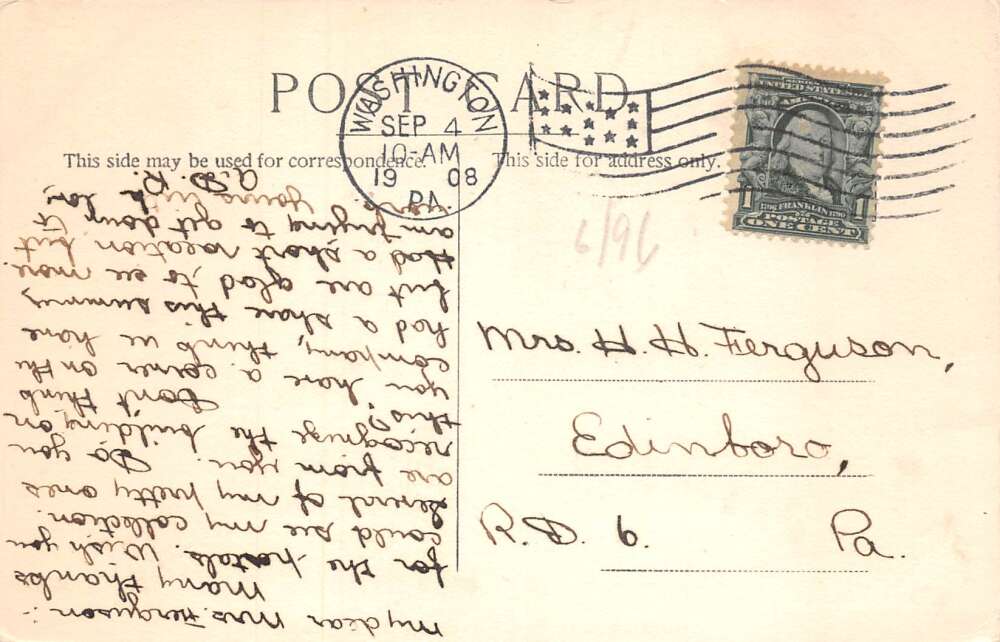 POST CARD
WASHINGTON
SEP 4
10-AM
1908
PA.
This side may be used for correspondence.
This side for address only.
UNITED STATES OF
AMERICA
1
1706 FRANKLIN 1790
POSTAGE
ONE CENT
6/96
Mrs. H. H. Ferguson,
Edinboro,
R. D. 6. Pa.
My dear Mrs. Ferguson :-
Many thanks
for the postals. Wish you
could see my collection.
Several of my pretty ones
are from you. Do you
recognize the building on
this? Don't think
you have a corner on the
company, think we have
had a share this summer
but are glad to see more.
Had a short vacation but
am trying to get down to
A. D. R.